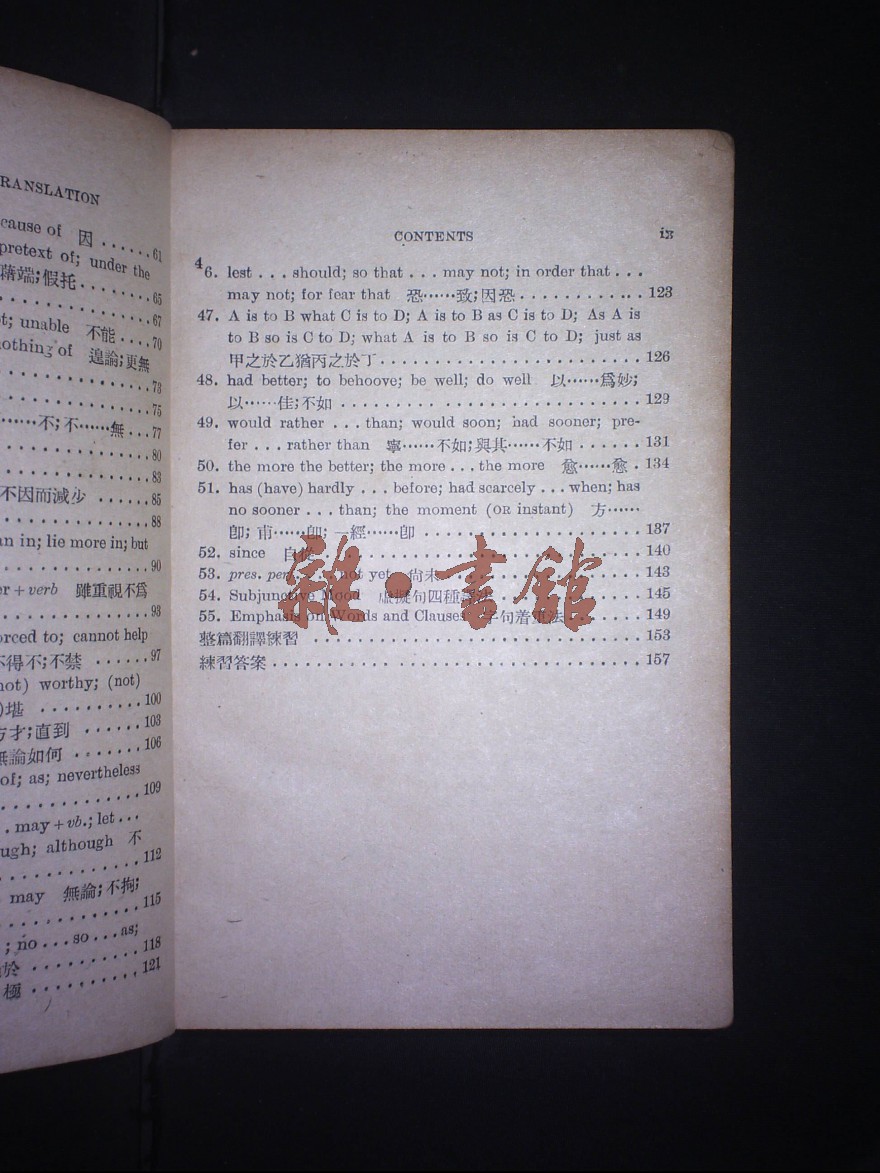 RANSLATION
cause of 因 ......61
pretext of; under the
藉端;假托........65
........67
unable 不能....70
nothing of 遑論;更無
........73
........75
不;不……無...77
........80
........83
不因而減少......85
........88
an in; lie more in; but
........90
er + verb 雖重視不爲
........93
orced to; cannot help
不得不;不禁......97
not) worthy; (not)
堪...........100
方才;直到......103
無論如何.......106
of; as; nevertheless
........109
. may + vb.; let ...
ugh; although 不
........112
may 無論;不拘;
........115
; no...so...as;
於..........118
極..........121
CONTENTS ix
46. lest . . . should; so that . . . may not; in order that . . .
may not; for fear that 恐……致;因恐............ 123
47. A is to B what C is to D; A is to B as C is to D; As A is
to B so is C to D; what A is to B so is C to D; just as
甲之於乙猶丙之於丁........................ 126
48. had better; to behoove; be well; do well 以……爲妙;
以……佳;不如........................ 129
49. would rather . . . than; would soon; had sooner; pre-
fer . . . rather than 寧……不如;與其……不如...... 131
50. the more the better; the more . . . the more 愈……愈. 134
51. has (have) hardly . . . before; had scarcely . . . when; has
no sooner . . . than; the moment (OR instant) 方……
卽; 甫……卽; 一經……卽.................. 137
52. since 自從........................ 140
53. pres. perf. . . . not yet 尙未.................. 143
54. Subjunctive Mood 虛擬句四種譯法............ 145
55. Emphasis on Words and Clauses 字句着重法...... 149
整篇翻譯練習........................ 153
練習答案........................ 157
雜·書館